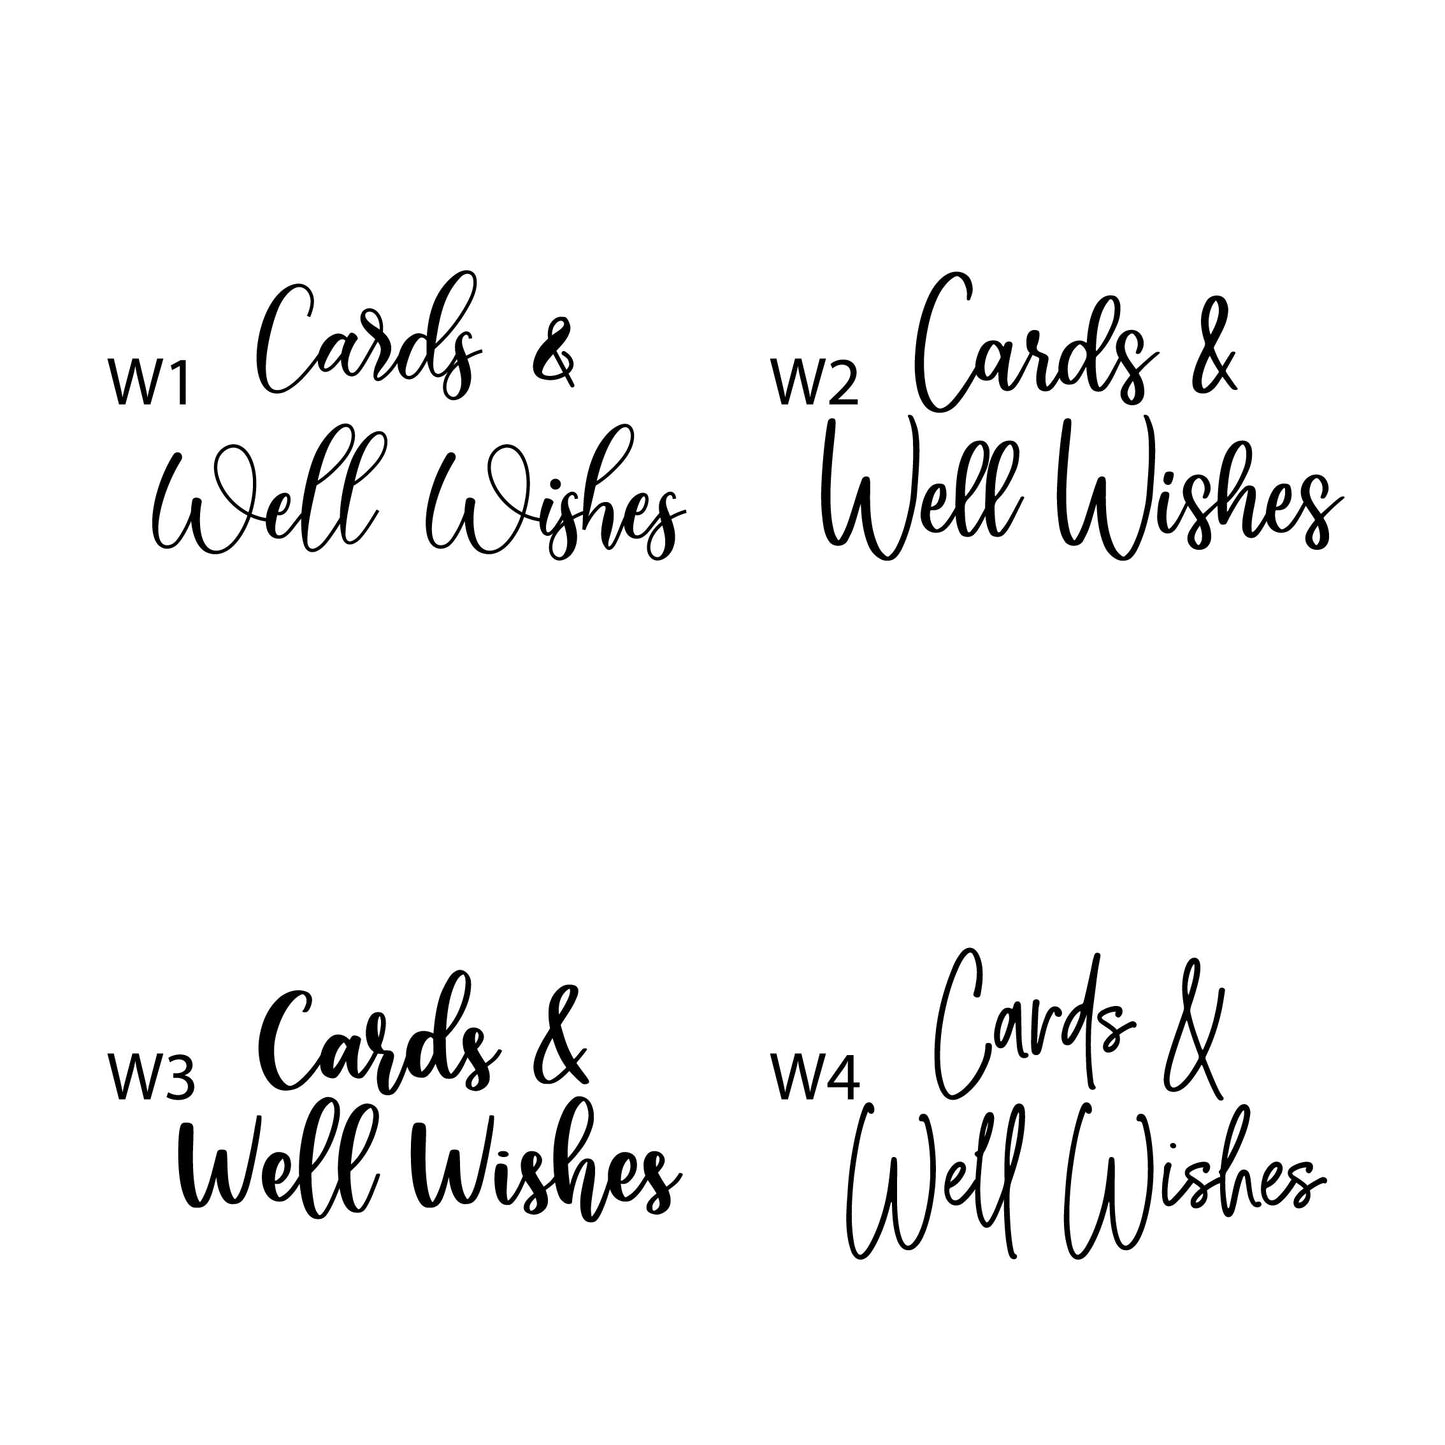 W1 Cards &
Well Wishes
W2 Cards &
Well Wishes
W3 Cards &
Well Wishes
W4 Cards &
Well Wishes